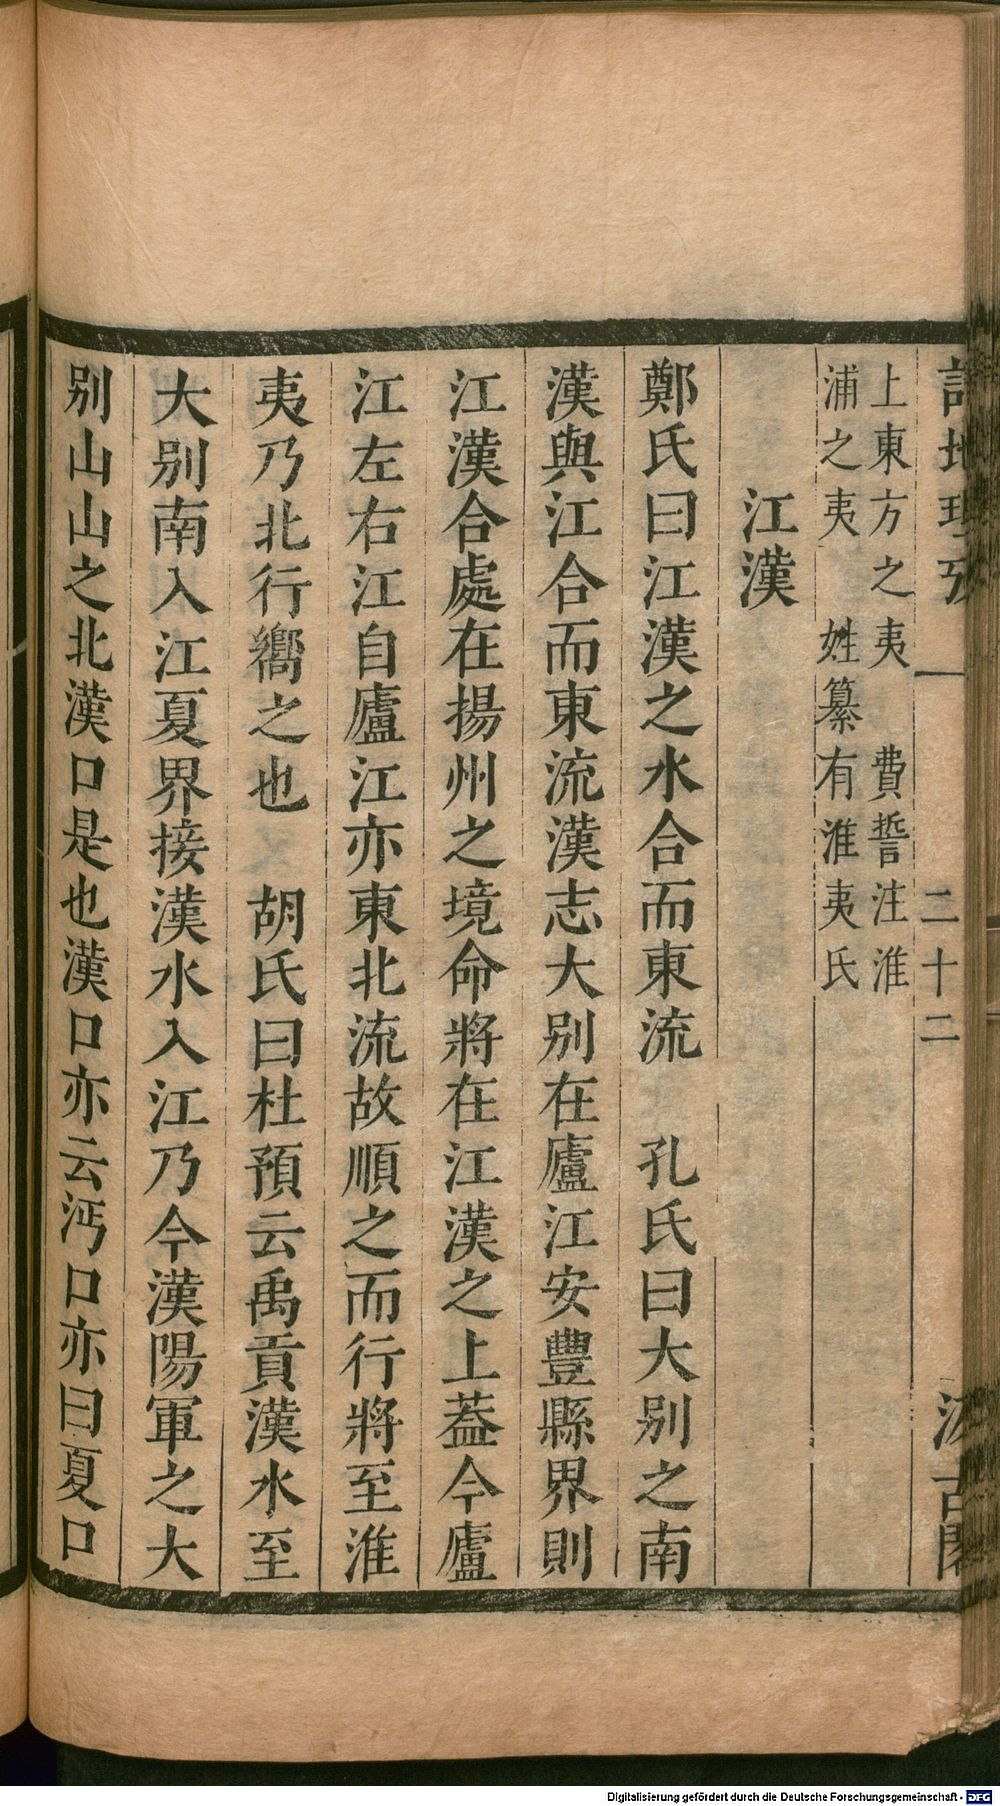 詩地理攷 一 二十二 汲古閣
上東方之夷 費誓注淮
浦之夷 姓纂有淮夷氏
江漢
鄭氏曰江漢之水合而東流 孔氏曰大别之南
漢與江合而東流漢志大别在廬江安豐縣界則
江漢合處在揚州之境命將在江漢之上葢今廬
江左右江自廬江亦東北流故順之而行將至淮
夷乃北行嚮之也 胡氏曰杜預云禹貢漢水至
大别南入江夏界接漢水入江乃今漢陽軍之大
别山山之北漢口是也漢口亦云沔口亦曰夏口
Digitalisierung gefördert durch die Deutsche Forschungsgemeinschaft - DFG